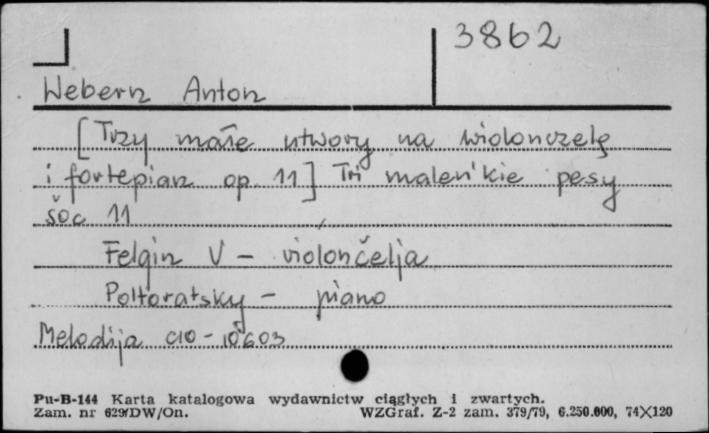 3862
Webern Anton
[Trzy małe utwory na wiolonczelę
i fortepian op. 11] Tri maleń'kie pesy
šoc 11
Felgin V – violončelja
Poltoratsky – piano
Melodija C10-10603
Pu-B-144 Karta katalogowa wydawnictw ciągłych i zwartych.
Zam. nr 629/DW/On. WZGraf. Z-2 zam. 379/79, 6.250.000, 74X120